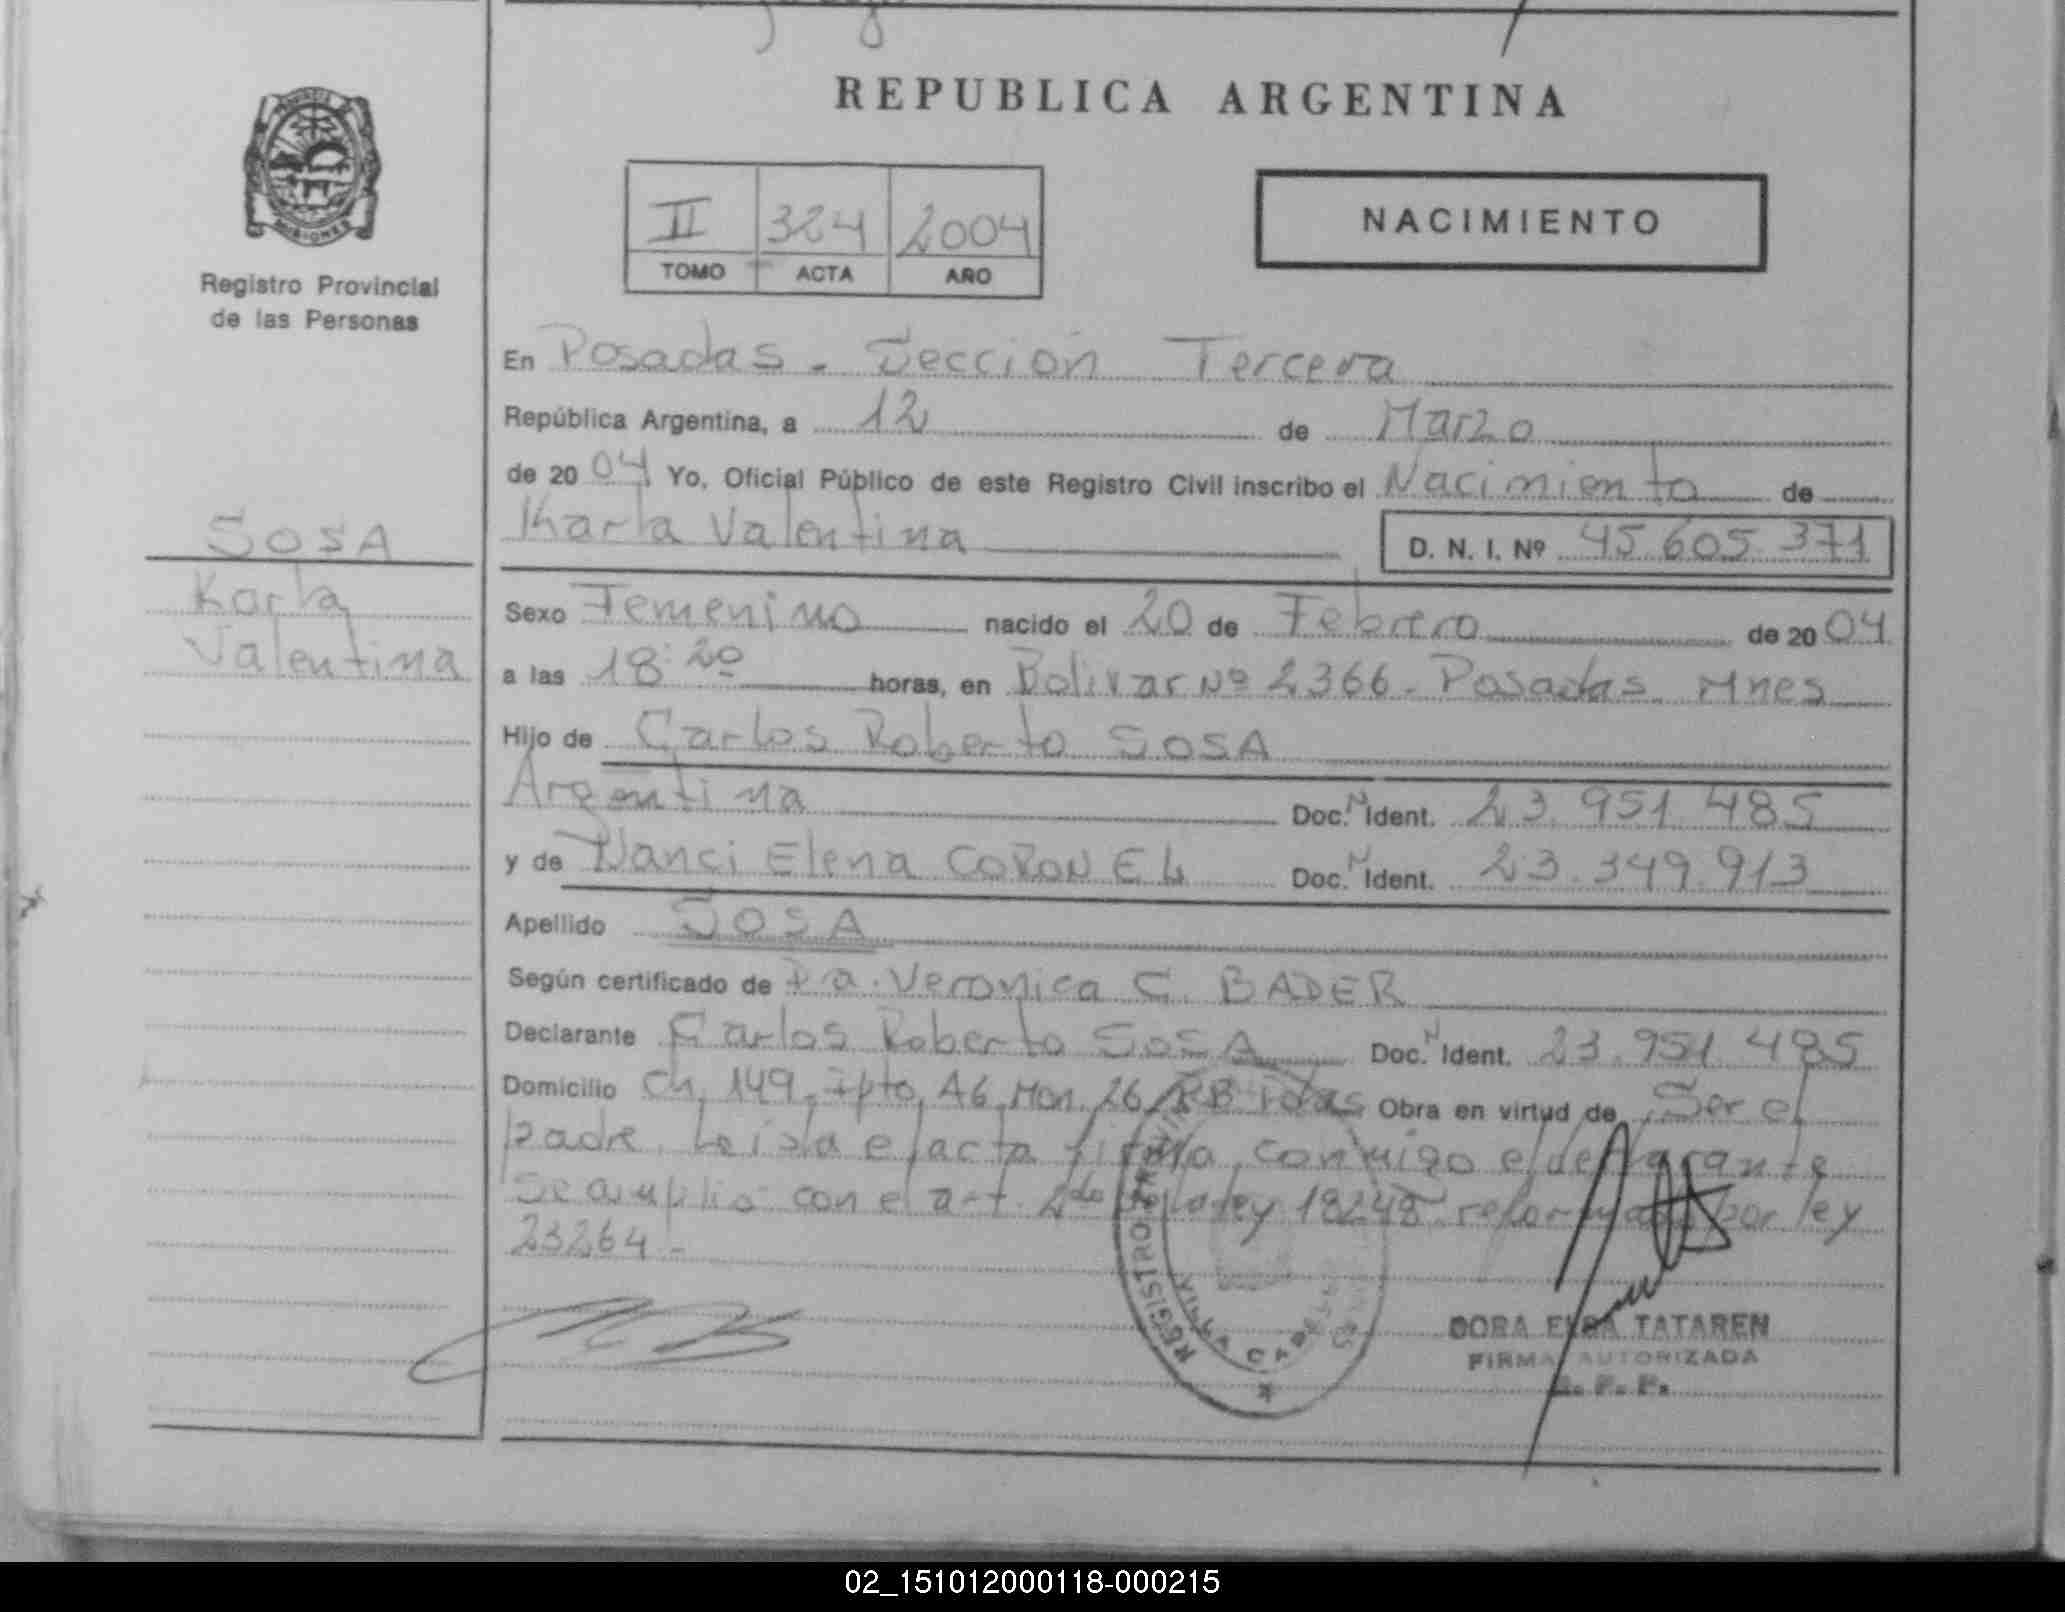 REPUBLICA ARGENTINA
II 324 2004
TOMO ACTA AÑO
NACIMIENTO
Registro Provincial
de las Personas
SOSA
Karla
Valentina
En Posadas - Sección Tercera
República Argentina, a 12 de Marzo
de 20 04 Yo, Oficial Público de este Registro Civil inscribo el Nacimiento de
Karla Valentina D. N. I. Nº 45.605.371
Sexo Femenino nacido el 20 de Febrero de 20 04
a las 18:20 horas, en Bolivar Nº 2366 - Posadas Mnes
Hijo de Carlos Roberto SOSA
Argentina Doc. N Ident. 23.951.485
y de Nanci Elena CORONEL Doc. N Ident. 23.349.913
Apellido SOSA
Según certificado de Dra. Veronica C. BADER
Declarante Carlos Roberto SOSA Doc. N Ident. 23.951.485
Domicilio Ch. 149, Dpto, A6, Mon. 26 Obra en virtud de Ser el
padre. Leida el acta firma conmigo el declarante
Se amplió con el art. 2do de la ley 18248 reformada por ley
23264 -
REGISTRO
VILLA CABELLO
DORA ELBA TATAREN
FIRMA AUTORIZADA
R. P. P.
02_151012000118-000215